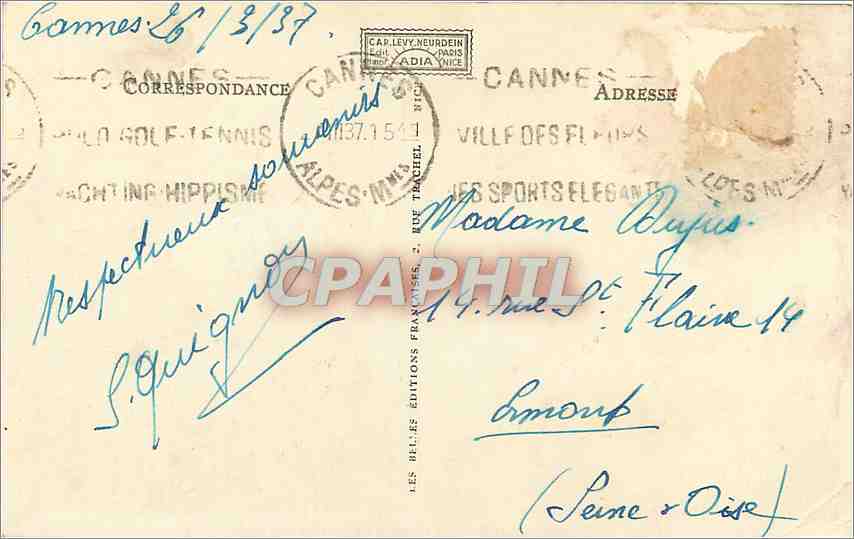 Cannes 26/3/37.
CAP. LEVY-NEURDEIN
Edit. PARIS
ADIA NICE
CANNES
CORRESPONDANCE
CANNES
37.15
ALPES-Mmes
POLO GOLF-TENNIS
YACHTING-HIPPISME
CANNES
ADRESSE
VILLE DES FLEURS
DES SPORTS ELEGANTS
Respectueux souvenirs
S. Quignon
LES BELLES ÉDITIONS FRANÇAISES, 2, RUE TRACHEL, NICE
Madame Dujus
14. rue St. Flaive 14
Ermont
(Seine & Oise)
CPAPHIL